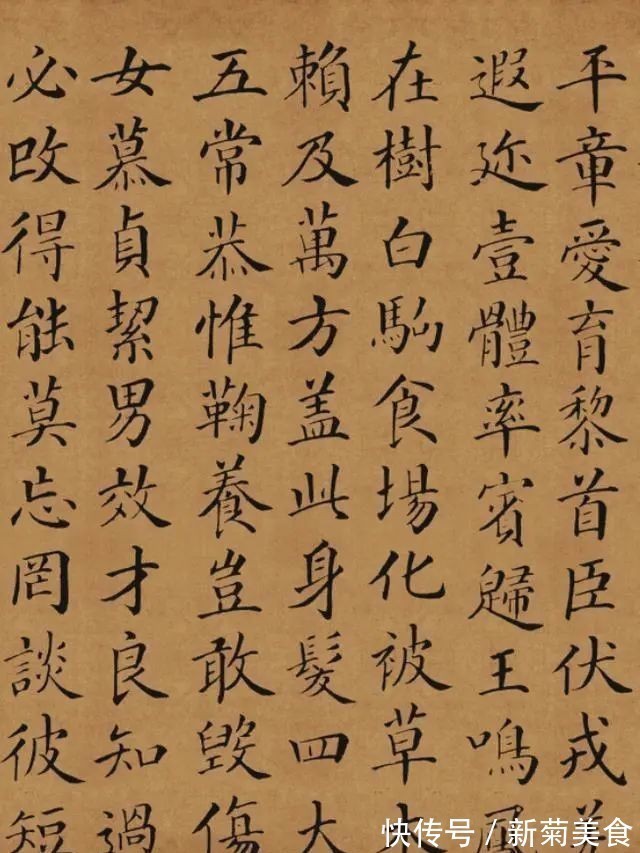 平章愛育黎首臣伏戎
遐迩壹體率賓歸王鳴
在樹白駒食場化被草
賴及萬方盖此身髮四大
五常恭惟鞠養豈敢毀傷
女慕貞絜男效才良知過
必改得能莫忘罔談彼短
快传号／新菊美食